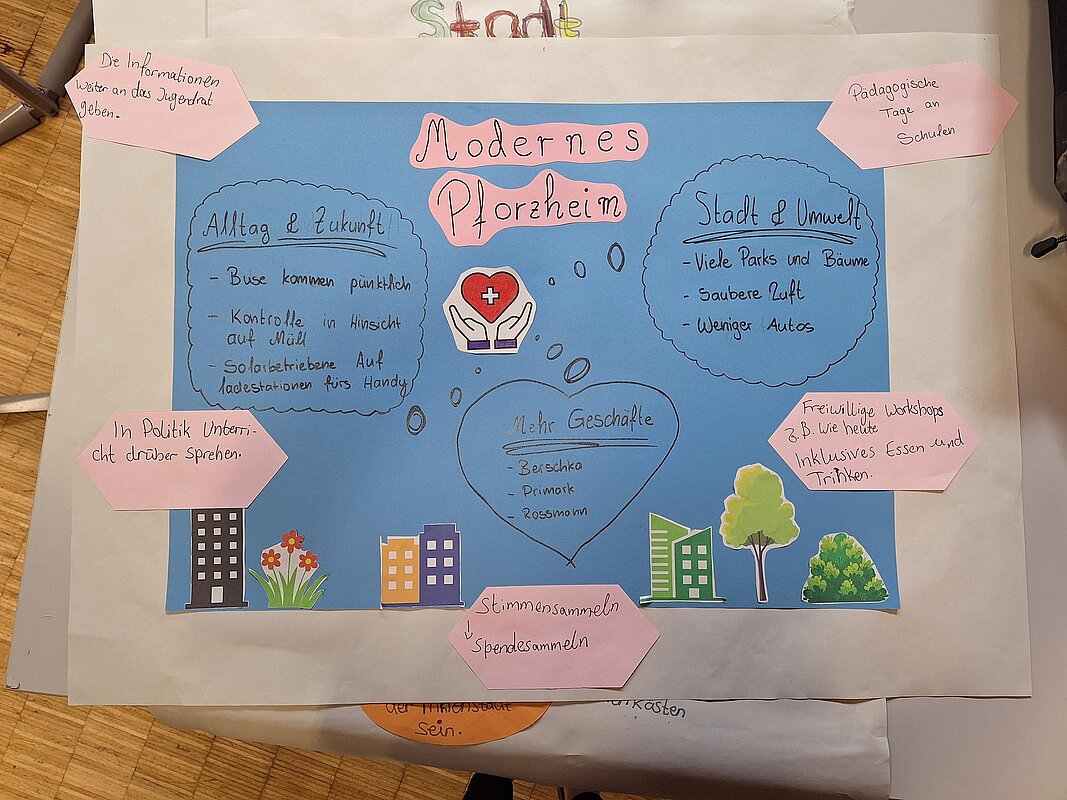 Stadt
Die Informationen
weiter an das Jugendrat
geben.
Pädagogische
Tage an
Schulen
Modernes
Pforzheim
Alltag & Zukunft
- Buse kommen pünktlich
- Kontrolle in Hinsicht
auf Müll
- Solarbetriebene Auf
ladestationen fürs Handy
Stadt & Umwelt
- Viele Parks und Bäume
- Saubere Luft
- Weniger Autos
Mehr Geschäfte
- Berschka
- Primark
- Rossmann
In Politik Unterri-
cht drüber sprehen.
Freiwillige Workshops
z.B. wie heute
Inklusives Essen und
Trinken.
Stimmensammeln
↓
Spendesammeln
der Innenstadt
sein.
kasten